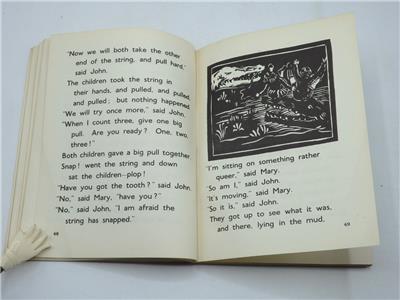 "Now we will both take the other
end of the string, and pull hard,"
said John.
The children took the string in
their hands, and pulled, and pulled,
and pulled; but nothing happened.
"We will try once more," said John.
"When I count three, give one big
pull. Are you ready? One, two,
three!"
Both children gave a big pull together
Snap! went the string and down
sat the children—plop!
"Have you got the tooth?" said John.
"No," said Mary, "have you?"
"No," said John, "I am afraid the
string has snapped."
48
"I'm sitting on something rather
queer," said Mary.
"So am I," said John.
"It's moving," said Mary.
"So it is," said John.
They got up to see what it was,
and there, lying in the mud,
49